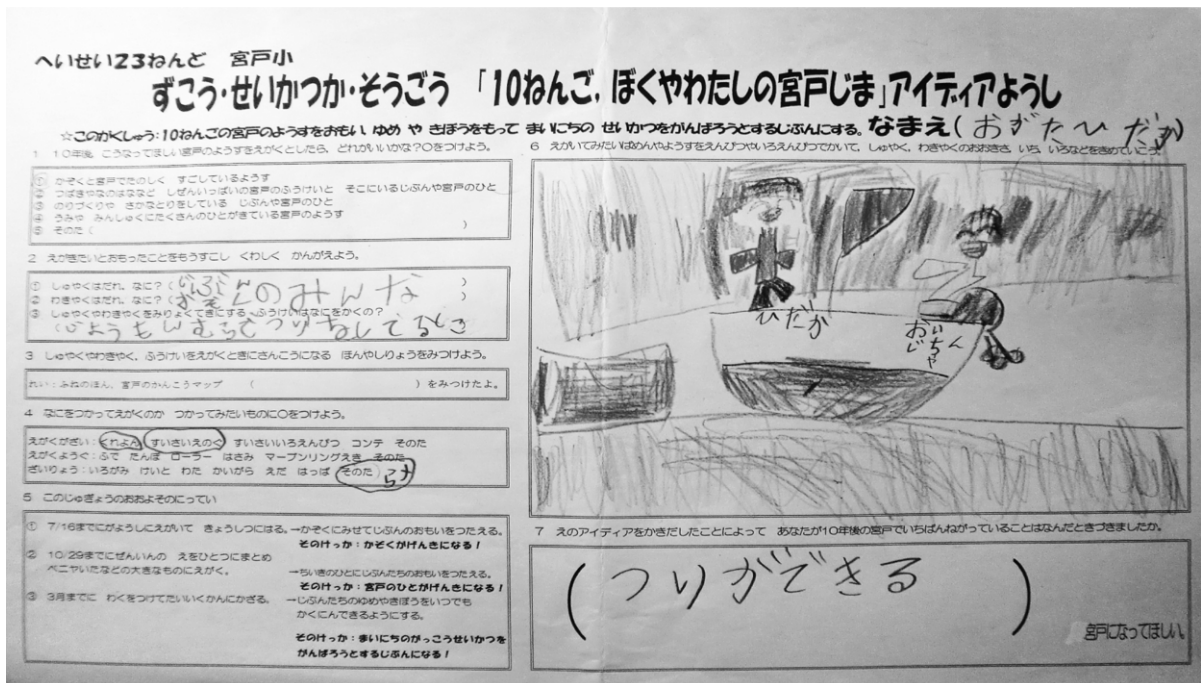 へいせい23ねんど 宮戸小
ずこう・せいかつか・そうごう 「10ねんご、ぼくやわたしの宮戸じま」アイディアようし
☆このがくしゅう:10ねんごの宮戸のようすをおもい ゆめ や きぼうをもって まいにちの せいかつをがんばろうとするじぶんにする。なまえ(おがたひだか)
1 10年後 こうなってほしい宮戸のようすをえがくとしたら、どれがいいかな?〇をつけよう。
① かぞくと宮戸でたのしく すごしているようす
② つばきやなのはななど しぜんいっぱいの宮戸のふうけいと そこにいるじぶんや宮戸のひと
③ のりづくりや さかなとりをしている じぶんや宮戸のひと
④ うみや みんしゅくにたくさんのひとがきている宮戸のようす
⑤ そのた( )
2 えがきたいとおもったことをもうすこし くわしく かんがえよう。
① しゅやくはだれ、なに?(じぶん )
② わきやくはだれ、なに?( のみんな )
③ しゅやくやわきやくをみりょくてきにする ふうけいはなにをかくの?
(じようもんむらでつりをしてるとこ
3 しゅやくやわきやく、ふうけいをえがくときにさんこうになる ほんやしりょうをみつけよう。
れい:ふねのほん、宮戸のかんこうマップ ( )をみつけたよ。
4 なにをつかってえがくのか つかってみたいものに〇をつけよう。
えがくがざい:くれよん すいさいえのぐ すいさいいろえんぴつ コンテ そのた
えがくようぐ:ふで たんぽ ローラー はさみ マーブンリングえき そのた
ざいりょう:いろがみ けいと わた かいがら えだ はっぱ そのた
5 このじゅぎょうのおおよそのにってい
① 7/16までにがようしにえがいて きょうしつにはる。→かぞくにみせてじぶんのおもいをつたえる。
そのけっか:かぞくがげんきになる!
② 10/29までにぜんいんの えをひとつにまとめ
ベニヤいたなどの大きなものにえがく。 →ちいきのひとにじぶんたちのおもいをつたえる。
そのけっか:宮戸のひとがげんきになる!
③ 3月までに わくをつけてたいいくかんにかざる。 →じぶんたちのゆめやきぼうをいつでも
かくにんできるようにする。
そのけっか:まいにちのがっこうせいかつを
がんばろうとするじぶんになる!
6 えがいてみたいばめんやようすをえんぴつやいろえんぴつでかいて、しゅやく、わきやくのおおきさ、いち、いろなどをきめていこう。
ひだか
おじいちゃん
7 えのアイディアをかきだしたことによって あなたが10年後の宮戸でいちばんねがっていることはなんだときづきましたか。
(つりができる )
宮戸になってほしい。